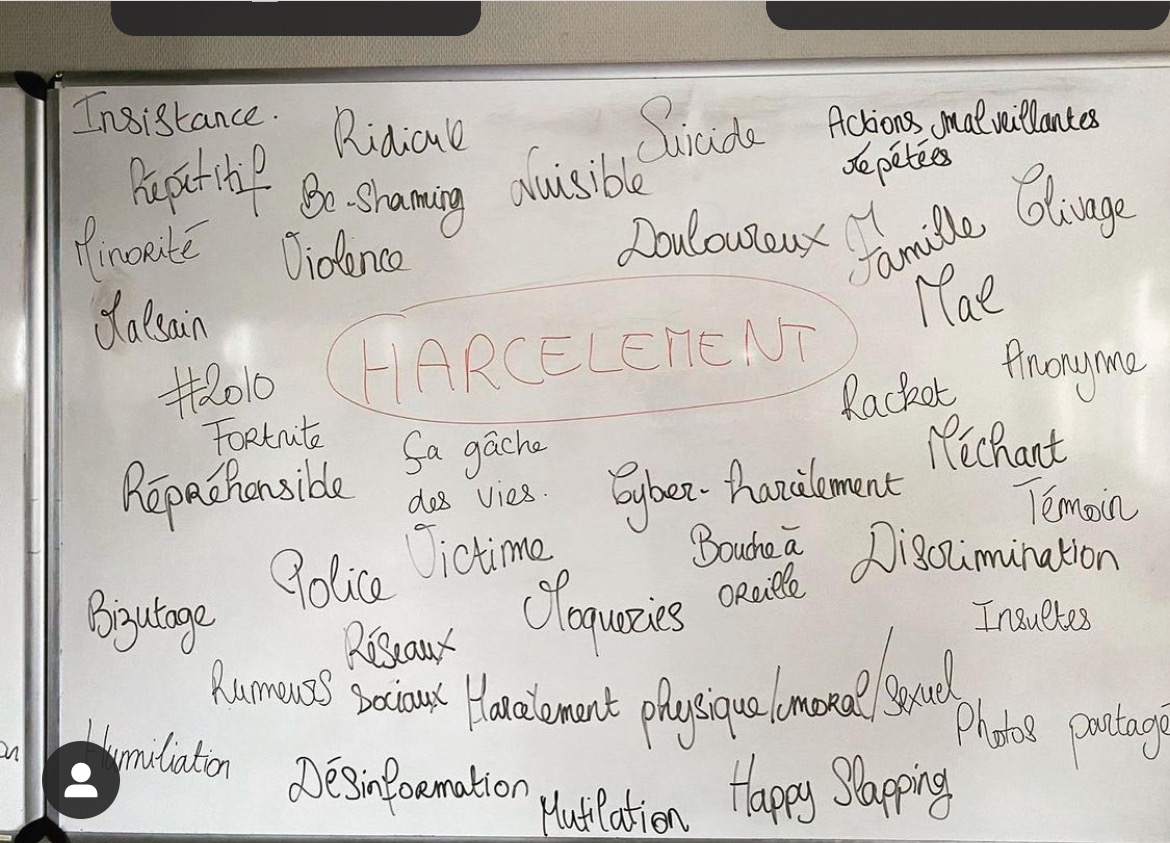 Insistance.
Ridicule
Suicide
Actions malveillantes
répétées
Répétitif
Bo-Shaming
Nuisible
Clivage
Minorité
Violence
Douloureux
Famille
Mal
Malsain
HARCELEMENT
Anonyme
#2010
Racket
Fortnite
Ça gâche
des vies.
Méchant
Répréhensible
Cyber-harcèlement
Témoin
Victime
Bouche à
oreille
Discrimination
Police
Bizutage
Moqueries
Insultes
Réseaux
sociaux
Rumeurs
Harcèlement physique/moral/sexuel
Photos partagé
Humiliation
Désinformation
Mutilation
Happy Slapping